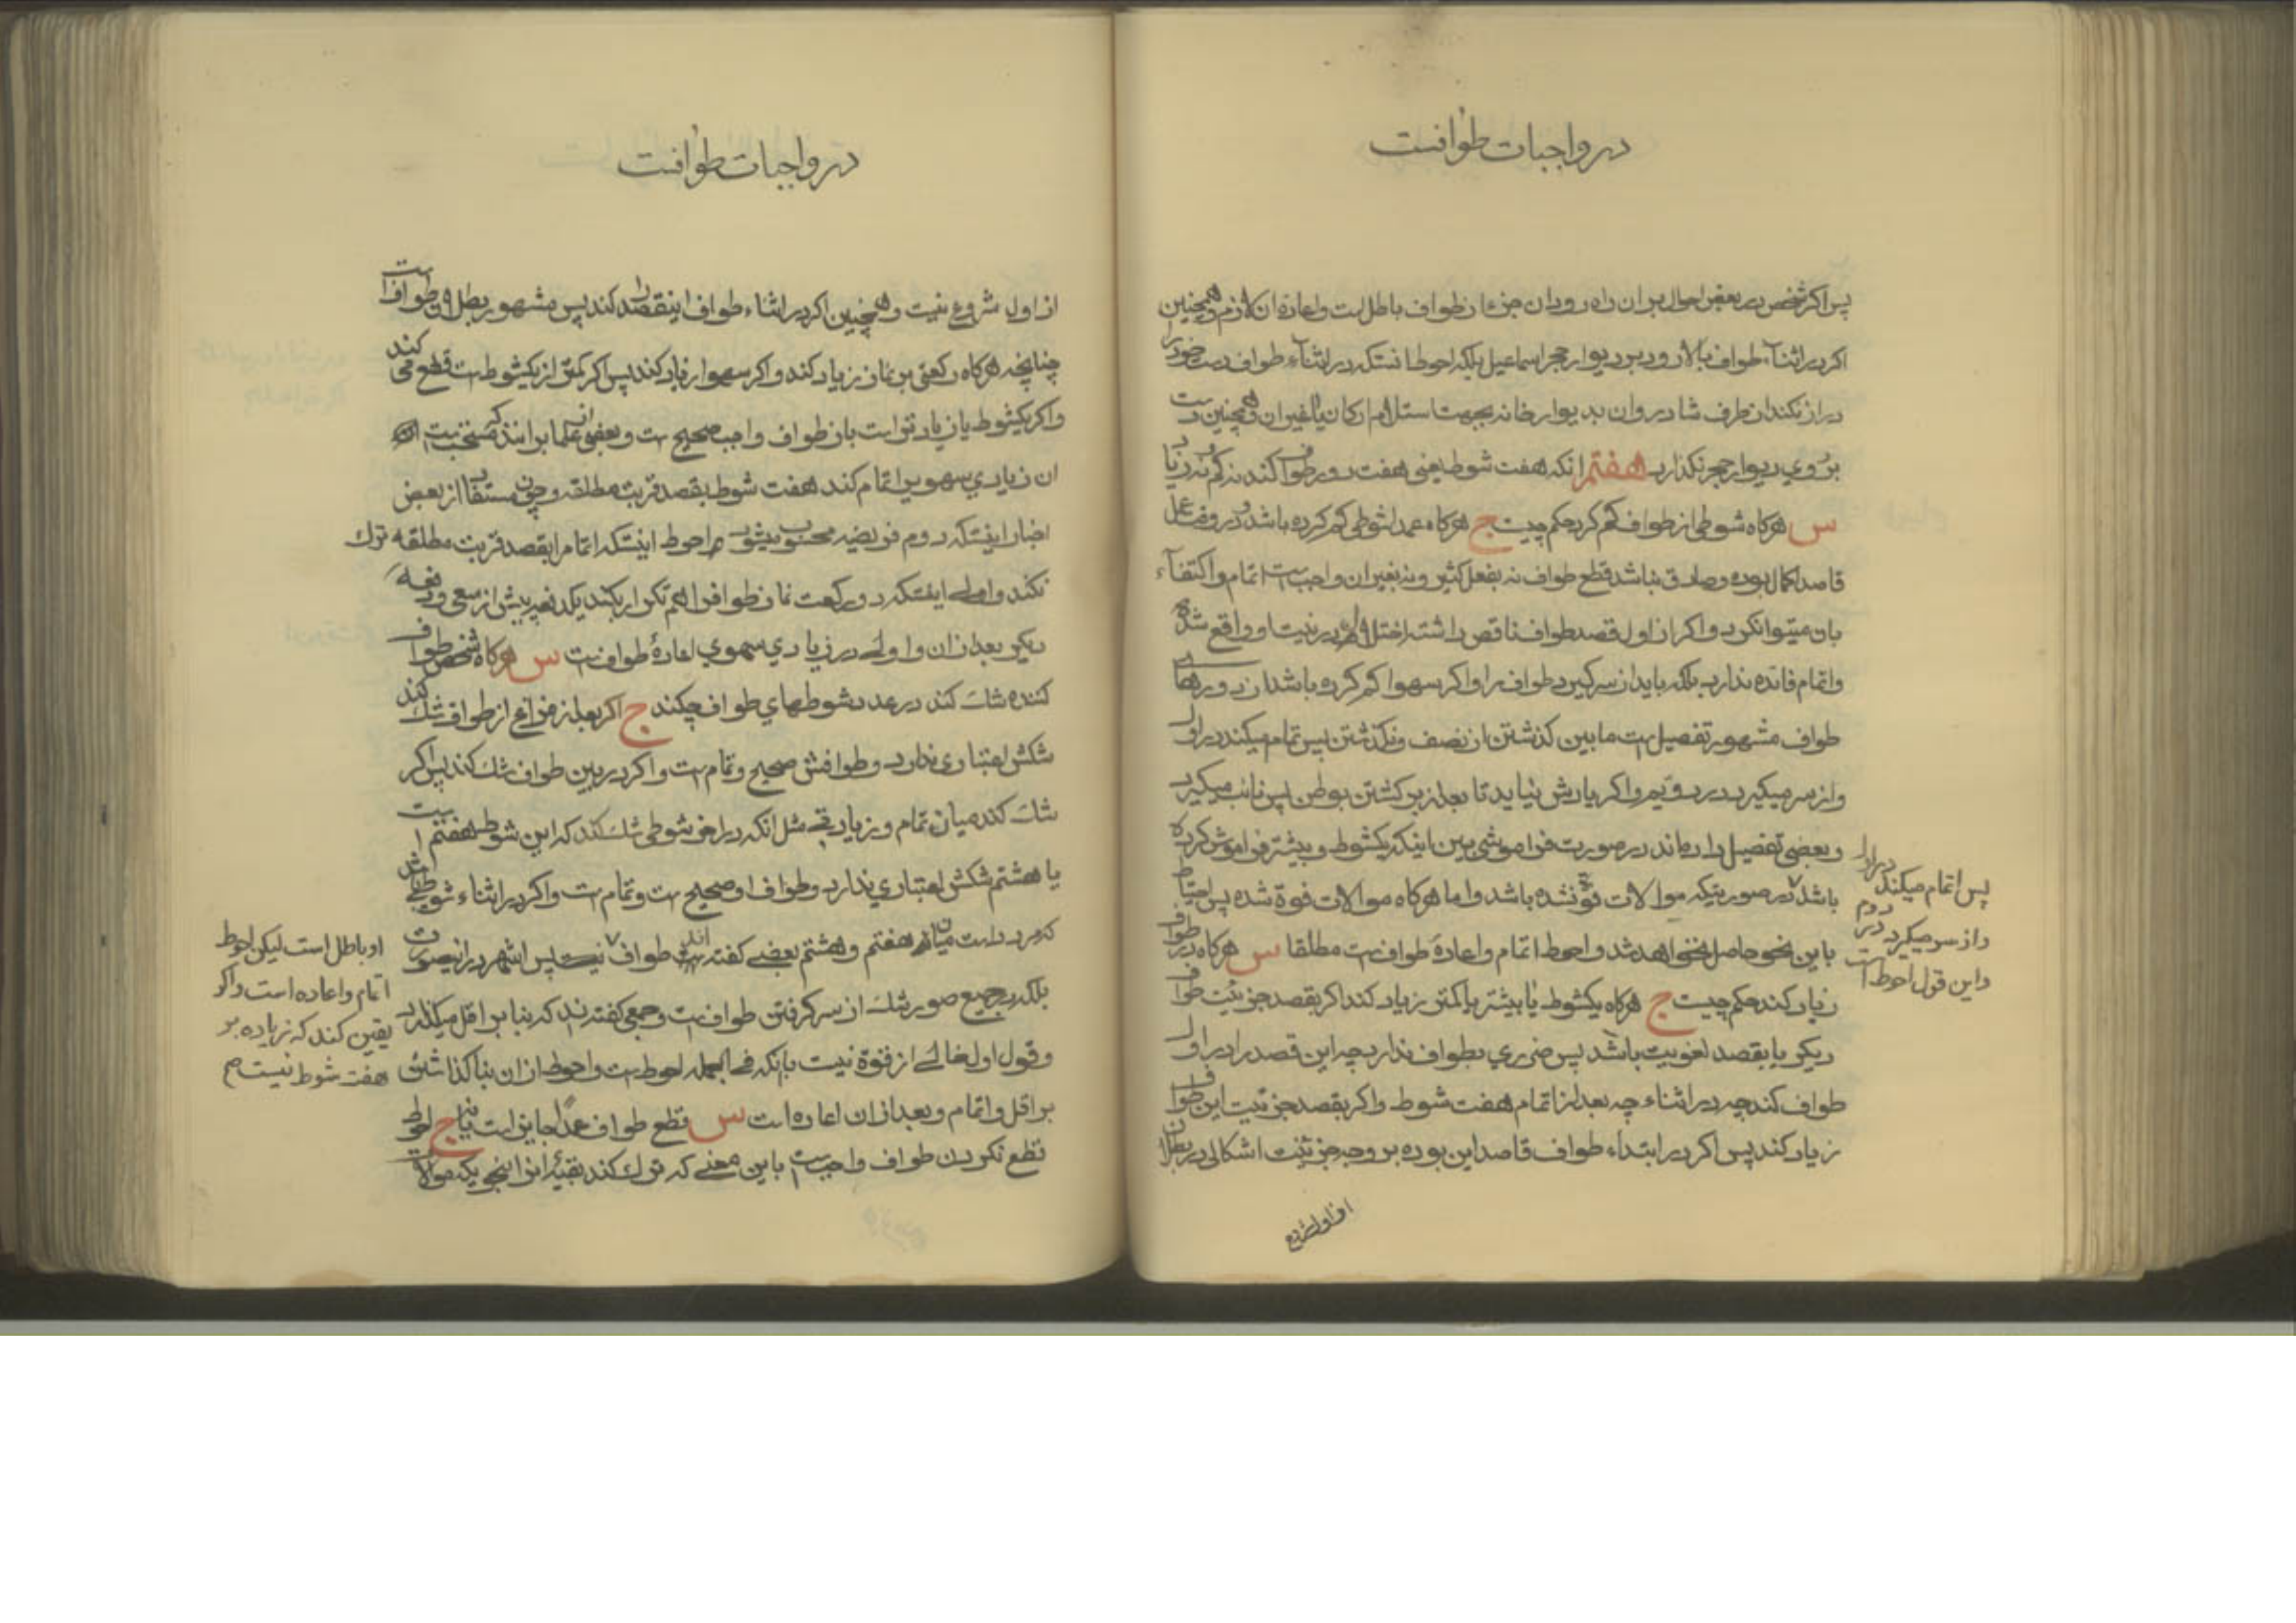 در واجبات طوافست
پس اگر شخص در بعض احوال بر ان راه رود ان جزء از طواف باطل است و اعاده ان لازم و همچنین
اکر در اثناء طواف بالا رود بر دیوار حجر اسماعیل بلکه احوط انستکه در اثناء طواف دست خود را
دراز نکند از طرف شاذروان بدیوار خانه بجهت استلام ارکان یا غیر ان و همچنین دست
بر روی دیوار حجر نکذارد هفتم انکه هفت شوط یعنی هفت دور طواف کند نه کم و نه زیاد
س هرکاه شوطی از طواف کم کرد حکم چیست ج هرکاه عمدا شوطی کم کرده باشد و در وقت عمل
قاصد اکمال بوده و صادق نباشد قطع طواف نه بفعل کثیر و نه بغیر ان واجب است اتمام و اکتفاء
بان میتوان کرد و اکر از اول قصد طواف ناقص داشته اختلال در نیت او واقع شده
و اتمام فائده ندارد بلکه باید از سر کیرد طواف را و اکر سهوا کم کرده باشد از دورهای
طواف مشهور تفصیل است مابین کذشتن از نصف و نکذشتن پس تمام میکند در اول
و از سر میکیرد در دویم و اکر یادش نیاید تا بعد از برکشتن بوطن پس نائب میکیرد
و بعضی تفصیل داده‌اند در صورت فراموشی بین اینکه یکشوط و بیشتر فراموش کرده
باشد در صورتیکه موالات فوة نشده باشد و اما هرکاه موالات فوة شده پس احتیاط
باین نحو حاصل نخواهد شد و احوط اتمام و اعادهٔ طواف است مطلقا س هرکاه در طواف
زیاد کند حکم چیست ج هرکاه یکشوط یا بیشتر یا کمتر زیاد کند اکر بقصد جزئیت طواف
دیکر یا بقصد لغویت باشد پس ضرری بطواف ندارد چه این قصد را در اول
طواف کند چه در اثناء چه بعد از اتمام هفت شوط و اکر بقصد جزئیت این طواف
زیاد کند پس اکر در ابتداء طواف قاصد این بوده بر وجه جزئیت اشکالی در بطلان
از اول شروع
پس اتمام میکند در اول
و از سر میکیرد در دوم
و این قول احوط است
در واجبات طوافست
از اول شروع نیست و همچنین اکر در اثناء طواف اینقصد را کند پس مشهور بطلان طواف است
چنانچه هرکاه رکعتی بر نماز زیاد کند و اکر سهوا زیاد کند پس اکر کمتر از یکشوط است قطع می کند
و اکر یکشوط یا زیادتر است باز طواف واجب صحیح است و بعضی از علما بر انند که مستحب است
ان زیادی سهویرا تمام کند هفت شوط بقصد قربت مطلقه و چون مستفاد از بعض
اخبار اینستکه دوم فریضه محسوب میشود احوط اینستکه اتمام را بقصد قربت مطلقه ترك
نکند و اولی اینستکه دو رکعت نماز طواف را هم تکرار بکند یکدفعه پیش از سعی و دفعه
دیکر بعد از ان و اولی در زیادی سهوی اعادهٔ طواف است س هرکاه شخص طواف
کننده شك کند در عدد شوطهای طواف چکند ج اکر بعد از فراغ از طواف شك کند
شکش اعتباری ندارد و طوافش صحیح و تمام است و اکر در بین طواف شك کند پس اکر
شك کند میان تمام و زیادتی مثل انکه در اخر شوطی شك کند که این شوط هفتم است
یا هشتم شکش اعتباری ندارد و طواف او صحیح است و تمام است و اکر در اثناء شوطی شك
میانه هفتم و هشتم بعضی کفته اند طواف پس اشهر در اینصورت
بلکه در جمیع صور شك از سر کرفتن طواف است و جمعی کفته‌اند که بنا بر اقل میکذارد
و قول اول خالی از قوة نیست با انکه فی الجمله احوط است و احوط از ان بنا کذاشتن
بر اقل و اتمام و بعد از ان اعاده است س قطع طواف عمدا جایز است یا نه ج احوط
قطع نکردن طواف واجب است باین معنی که ترك کند بقیهٔ انرا بنحویکه موالات
او باطل است لیکن احوط
اتمام و اعاده است و اکر
یقین کند که زیاده بر
هفت شوط نیست صح